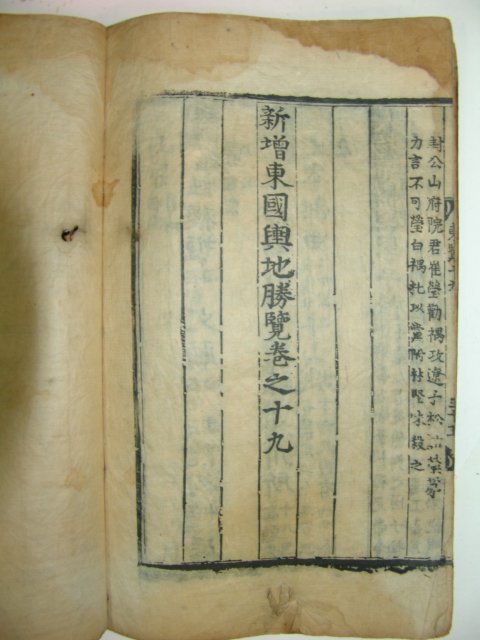 封公山府院君崔瑩勸禑攻遼子松
力言不可瑩白禑託以黨附林堅味殺之
新增東國輿地勝覽卷之十九